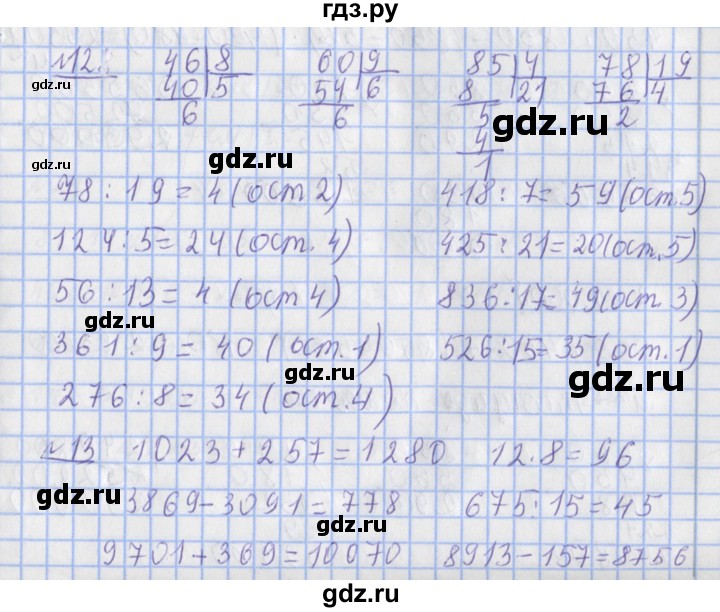 гдз.ру
№12. 46 8 60 9 85 4 78 19
40 5 54 6 8 21 76 4
6 6 5 2
4
1
gdz.ru
gdz.ru
gdz.ru
gdz.ru
78 : 19 = 4 (ост 2) 418 : 7 = 59 (ост. 5)
gdz.ru
124 : 5 = 24 (ост. 4) 425 : 21 = 20 (ост. 5)
gdz.ru
56 : 13 = 4 (ост 4) 836 : 17 = 49 (ост. 3)
gdz.ru
361 : 9 = 40 (ост. 1) 526 : 15 = 35 (ост. 1)
gdz.ru
gdz.ru
276 : 8 = 34 (ост. 4)
№13 1023 + 257 = 1280 12 · 8 = 96
gdz.ru
3869 - 3091 = 778 675 : 15 = 45
gdz.ru
gdz.ru
9701 + 369 = 10070 8913 - 157 = 8756
gdz.ru
gdz.ru